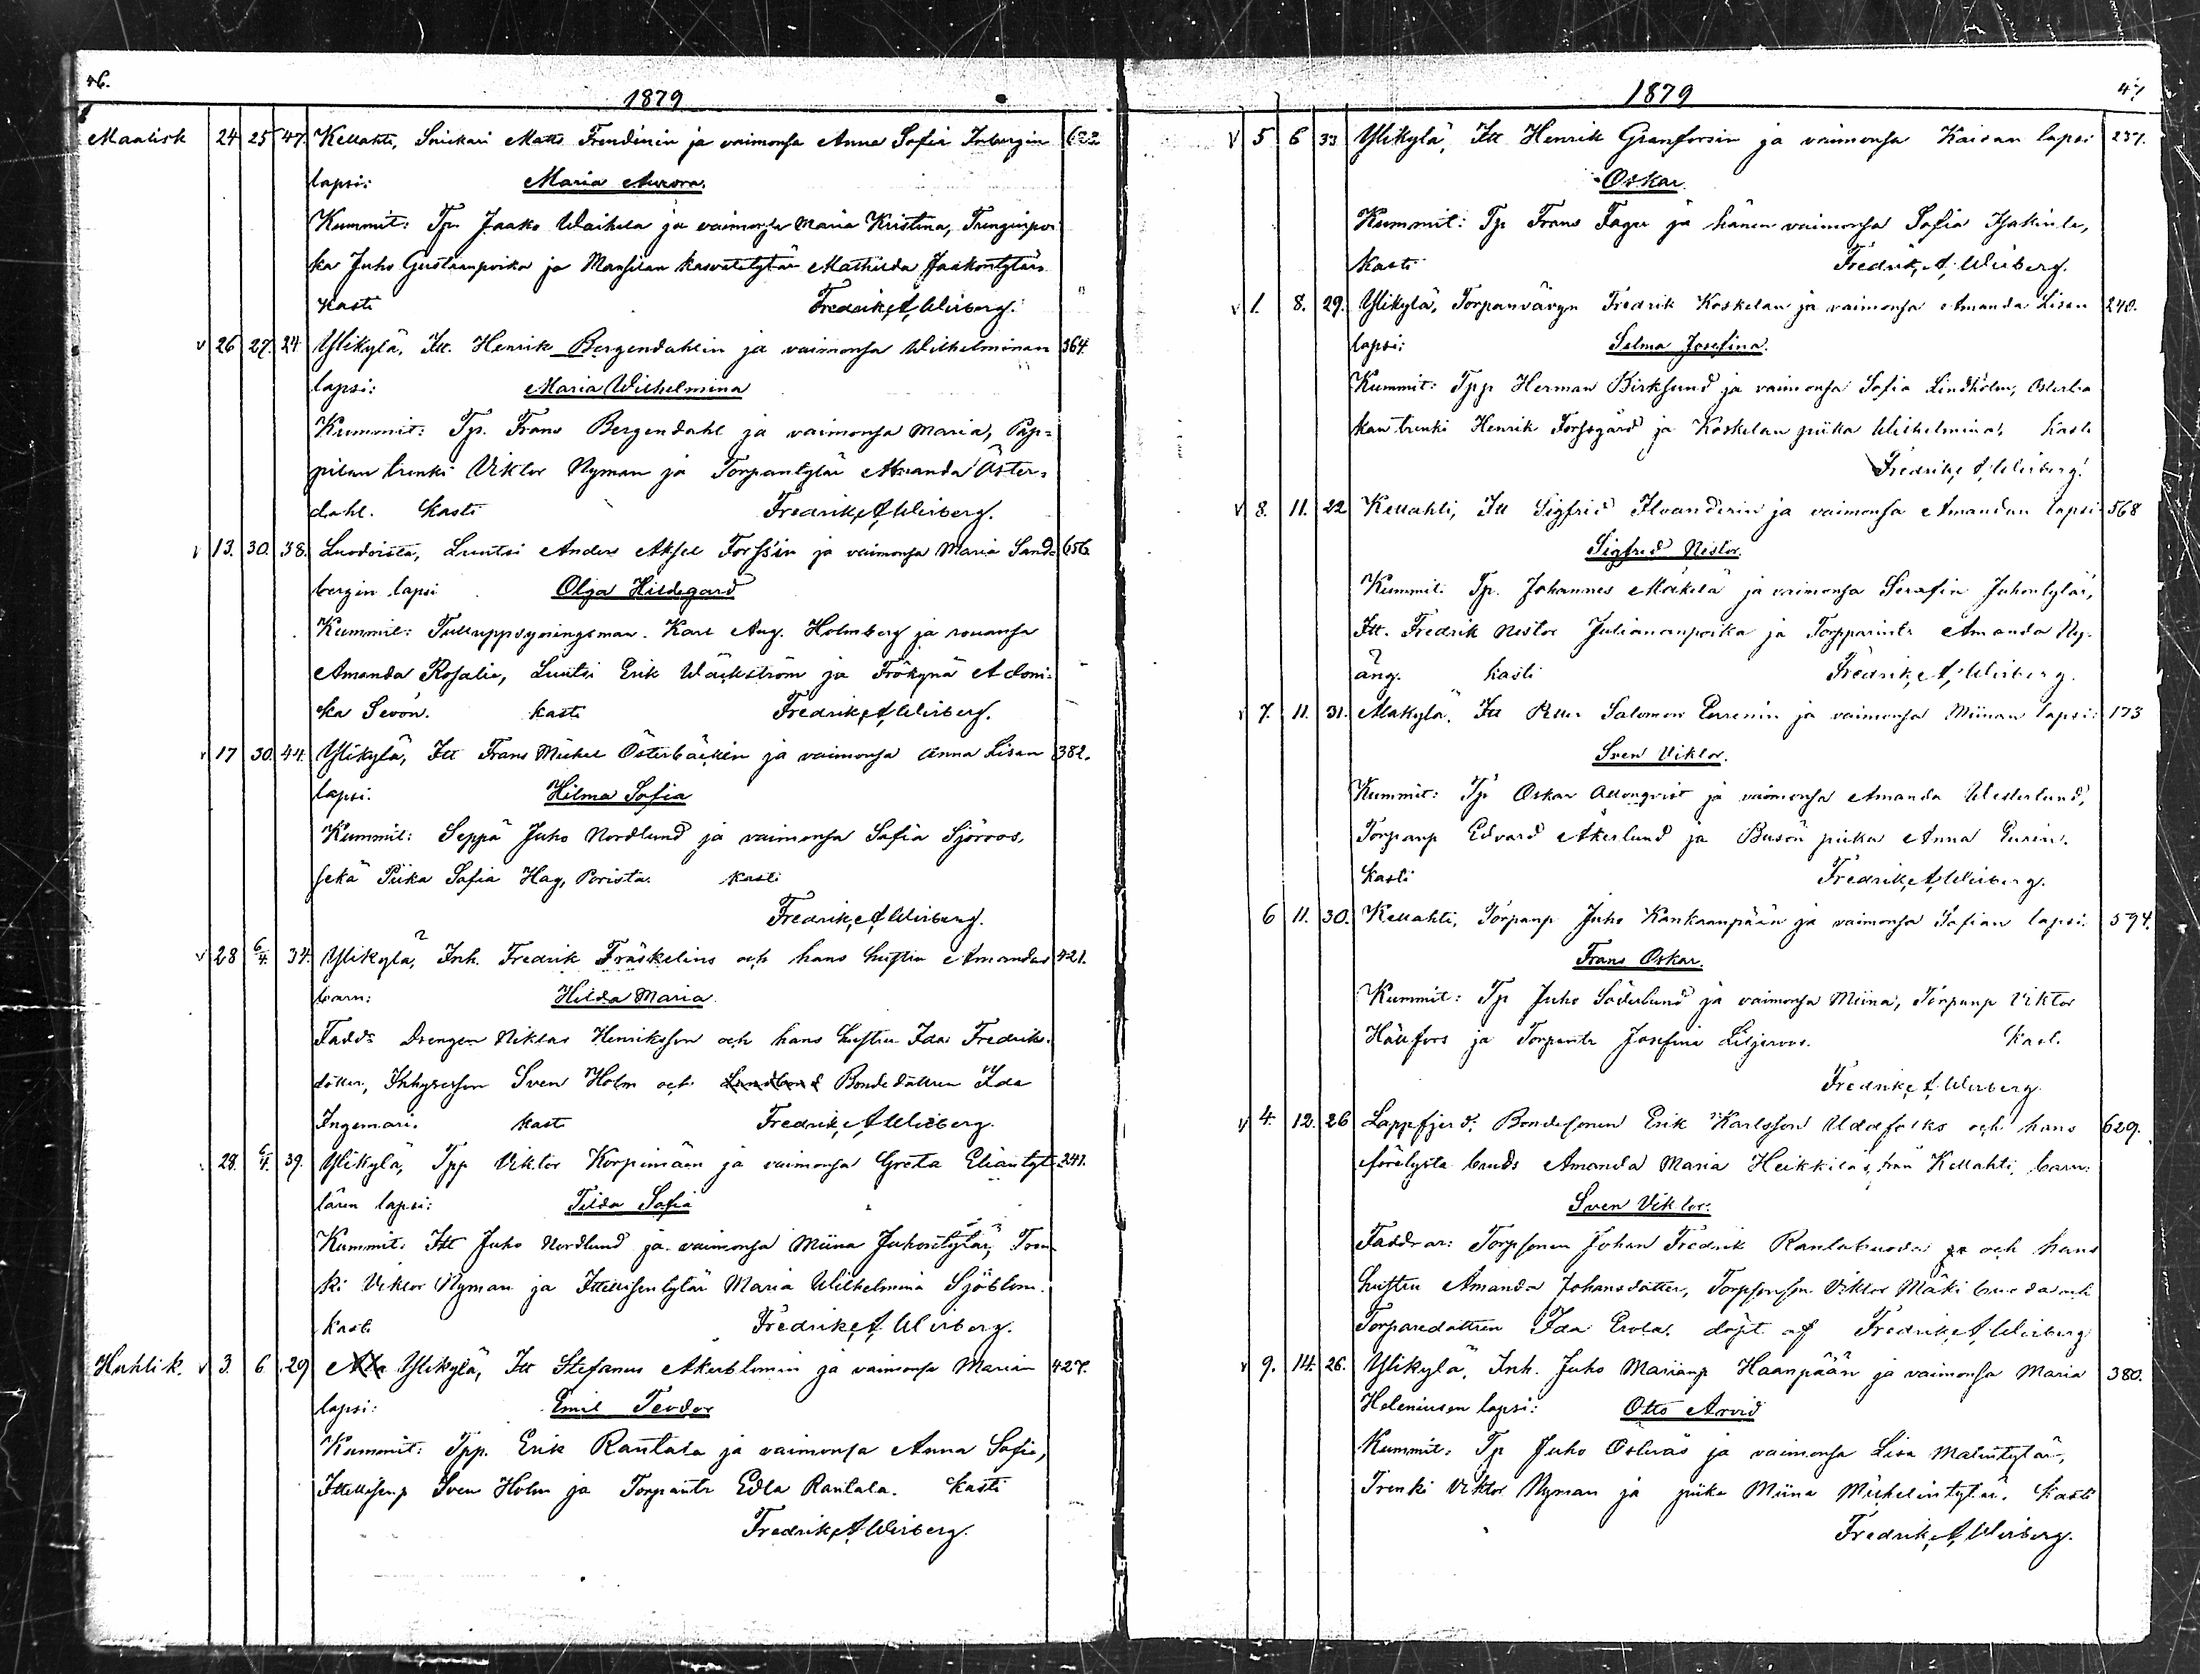 46.
1879
Maalisk 24 25 47. Kellahti, Snickari Matts Frendinin ja vaimonsa Anna Sofia Inbergin 622
lapsi: Maria Aurora.
Kummit: Tp. Jaako Waihela ja vaimonsa Maria Kristina, Trenginpoi
ka Juho Gustaanpoika ja Mansilan kasvatetytär Mathilda Jaakontytär.
Kasti Fredrik A. Wiberg.
v 26 27. 24 Ylikylä, Itt. Henrik Bergendahlin ja vaimonsa Wilhelminan 364.
lapsi: Maria Wilhelmina
Kummit: Tp. Frans Bergendahl ja vaimonsa Maria, Pap-
pilan trenki Viktor Nyman ja Torpantytär Amanda Öster-
dahl. Kasti Fredrik A. Wiberg.
v 13. 30. 38. Luodoista, Luutsi Anders Aksel Forss'in ja vaimonsa Maria Sand- 656
bergin lapsi Olga Hildegard
Kummit: Tulluppsyningsman. Karl Aug. Holmberg ja rouvansa
Amanda Rosalie, Luutsi Erik Wäckström ja Frökynä
ka Sevón. kasti Fredrik A. Wiberg.
v 17 30. 44. Ylikylä, Itt Frans Mickel Österbäckin ja vaimonsa Anna Lisan 382.
lapsi. Hilma Sofia
Kummit: Seppä Juho Nordlund ja vaimonsa Sofia Sjöroos,
sekä Piika Sofia Hag, Porista. kasti
Fredrik A. Wiberg.
v 28 6/4. 34. Ylikylä, Inh. Fredrik Fräskelins och hans hustru Amandas 421.
barn: Hilda Maria.
Fadd: Drengen Niklas Henriksson och hans hustru Ida Fredriks-
dotter, Inhyseson Sven Holm och Bondedottren Ida
Ingemari. kasti Fredrik A. Wiberg.
28. 6/4. 39. Ylikylä, Tpp Viktor Korpimäen ja vaimonsa Greta Eliantyt- 241.
tären lapsi: Tilda Sofia
Kummit: Itt Juho Nordlund ja vaimonsa Miina Juhontytär, Tren-
ki Viktor Nyman ja Ittellisentytär Maria Wilhelmina Sjöblom.
kasti Fredrik A. Wiberg.
Huhtik. v 3. 6 29 Ylikylä, Itt Stefanus Akerblomin ja vaimonsa Marian 427.
lapsi: Emil Teodor
Kummit: Tpp. Erik Rantala ja vaimonsa Anna Sofia,
Ittellisenp Sven Holm ja Torpantr Edla Rantala. Kasti
Fredrik A. Wiberg.
1879
47
v 5 6 33 Ylikylä, Itt Henrik Granforsin ja vaimonsa Kaisan lapsi 237.
Oskar.
Kummit: Tp Frans Fager ja hänen vaimonsa Sofia
Kasti Fredrik A. Wiberg.
v 1. 8. 29. Ylikylä, Torpanvävyn Fredrik Koskelan ja vaimonsa Amanda Lisan 240.
lapsi: Selma Josefina.
Kummit: Tpp Herman Birklund ja vaimonsa Sofia Lindholm,
kan trenki Henrik Forssgård ja Koskelan piika Wilhelmina. Kasti
Fredrik A. Wiberg.
v 8. 11. 22 Kellahti, Itt Sigfrid Ilvanderin ja vaimonsa Amandan lapsi 568
Sigfrid Nestor.
Kummit. Tp. Johannes Mäkelä ja vaimonsa Serafin Juhontytär,
Itt. Fredrik Nestor Juliananpoika ja Torpparintr Amanda Ny-
äng. kasti Fredrik A. Wiberg.
v 7. 11. 31. Alakylä, Itt Petter Salomon ja vaimonsa Miinan lapsi: 173
Sven Viktor.
Kummit: Tp Oskar Allonqvist ja vaimonsa Amanda Westerlund,
Torpanp Edvard Åkerlund ja Busön piika Anna
Kasti Fredrik A. Wiberg.
6 11. 30. Kellahti, Torpanp Juho Kankaanpään ja vaimonsa Sofian lapsi. 594.
Frans Oskar.
Kummit: Tp Juho Söderlund ja vaimonsa Miina, Torpanp Viktor
Hällfors ja Torpantr Josefina Liljeroos. Kast.
Fredrik A. Wiberg.
v 4. 12. 26 Lappfjerd. Bondesonen Erik Karlsson Uddfolks och hans 629.
förelysta bruds Amanda Maria Heikkiläs, från Kellahti, barn:
Sven Viktor.
Faddrar: Torpsonen Johan Fredrik Rantabuoda och hans
hustru Amanda Johansdotter, Torpsonen Viktor Mäkibuoda och
Torparedottren Ida Erola. döpt af Fredrik A. Wiberg
v 9. 14. 26. Ylikylä, Inh. Juho Marianp Haanpään ja vaimonsa Maria 380.
Heleniusen lapsi: Otto Arvid
Kummit. Tp Juho Österås ja vaimonsa Lisa Matintytär,
Trenki Viktor Nyman ja piika Miina Mickelintytär. Kasti
Fredrik A. Wiberg.